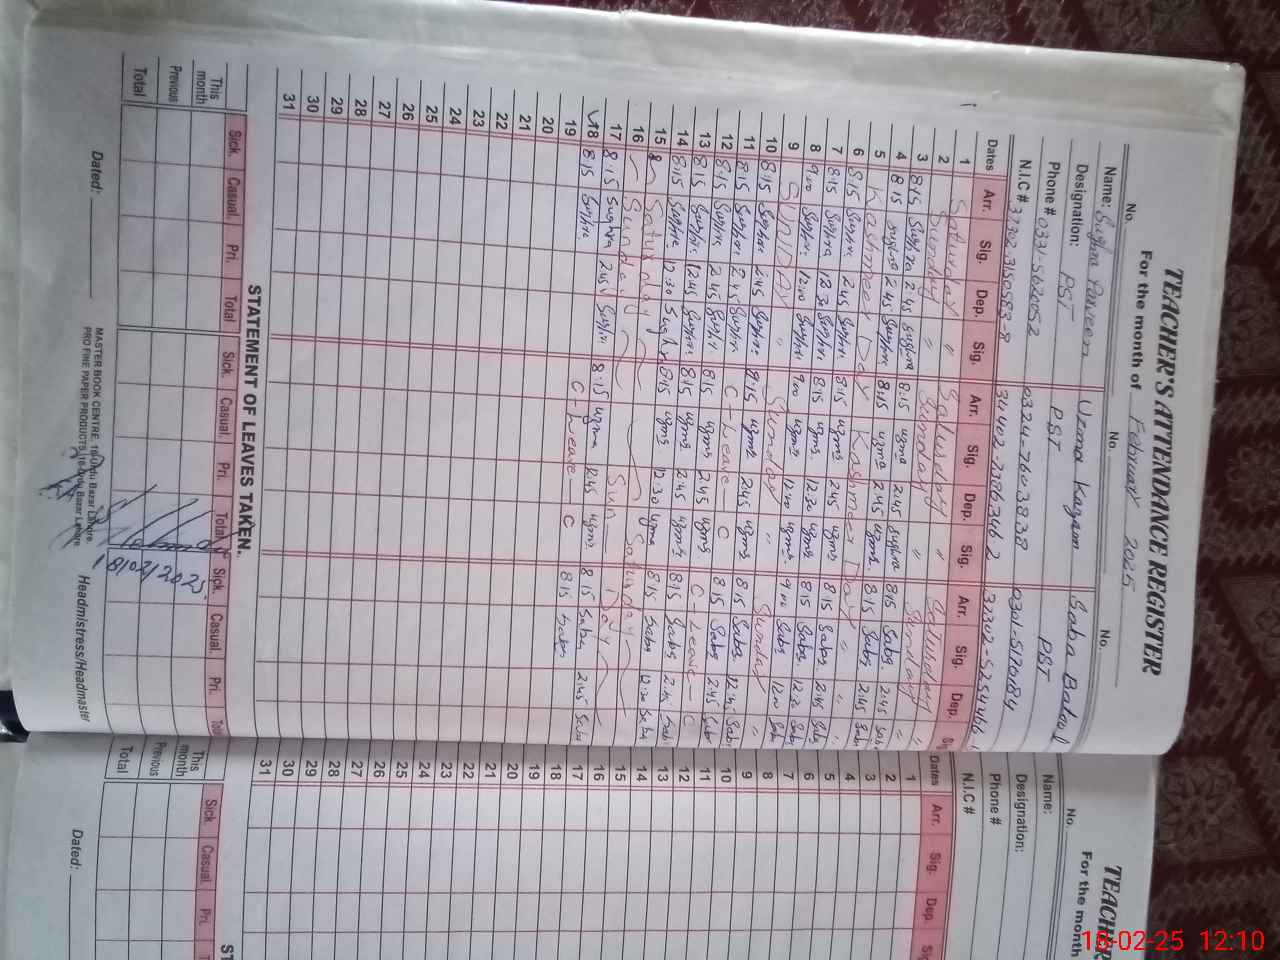 TEACHER'S ATTENDANCE REGISTER
For the month of February 2025
No. No. No.
Name: Sughra Parveen Uzma Kazam Saba Batool
Designation: PST PST PST
Phone # 0331-5620052 0324-7603838 0301-5170184
N.I.C #
Dates Arr. Sig. Dep. Sig. Arr. Sig. Dep. Sig. Arr. Sig. Dep. Sig
1 Saturday " Saturday " Saturday "
2 Sunday " Sunday " Sunday "
3 8:15 Sughra 2:45 Sughra 8:15 uzma 2:45 8:15 Saba 2:45 Saba
4 8:15 Sughra 2:45 Sughra 8:15 uzma 2:45 uzma 8:15 Saba 2:45 Saba
5 Kashmeer Day Kashmeer Day "
6 8:15 Sughra 2:45 Sughra 8:15 uzma 2:45 uzma 8:15 Saba 2:45 Saba
7 8:15 Sughra 12:30 Sughra 8:15 uzma 12:30 uzma 8:15 Saba 12:30 Saba
8 9:00 Sughra 12:00 Sughra 9:00 uzma 12:00 uzma 9:00 Saba 12:00 Saba
9 SUNDAY " Sunday " Sunday "
10 8:15 Sughra 2:45 Sughra 8:15 uzma 2:45 uzma 8:15 Saba 12:45 Saba
11 8:15 Sughra 2:45 Sughra C - Leave - C 8:15 Saba 2:45 Saba
12 8:15 Sughra 2:45 Sughra 8:15 uzma 2:45 uzma C - Leave - C
13 8:15 Sughra 12:45 Sughra 8:15 uzma 2:45 uzma 8:15 Saba 2:45 Saba
14 8:15 Sughra 12:30 Sughra 8:15 uzma 12:30 uzma 8:15 Saba 12:30 Saba
15 Saturday Saturday
16 Sunday Sun Day
17 8:15 Sughra 2:45 Sughra 8:15 uzma 2:45 uzma 8:15 Saba 2:45 Saba
18 8:15 Sughra C - Leave - C 8:15 Saba
19
20
21
22
23
24
25
26
27
28
29
30
31
STATEMENT OF LEAVES TAKEN.
Sick. Casual. Pri. Total Sick. Casual. Pri. Total Sick. Casual. Pri.
This month
Previous
Total
18/02/2025
Dated:
MASTER BOOK CENTRE, 16-Urdu Bazar Lahore.
PRO FINE PAPER PRODUCTS, 16-Urdu Bazar Lahore
Headmistress/Headmaster
TEACHER
For the month
No.
Name:
Designation:
Phone #
N.I.C #
Dates Arr. Sig. Dep. Sig.
1
2
3
4
5
6
7
8
9
10
11
12
13
14
15
16
17
18
19
20
21
22
23
24
25
26
27
28
29
30
31
ST
Sick. Casual. Pri.
This month
Previous
Total
Dated:
18-02-25 12:10